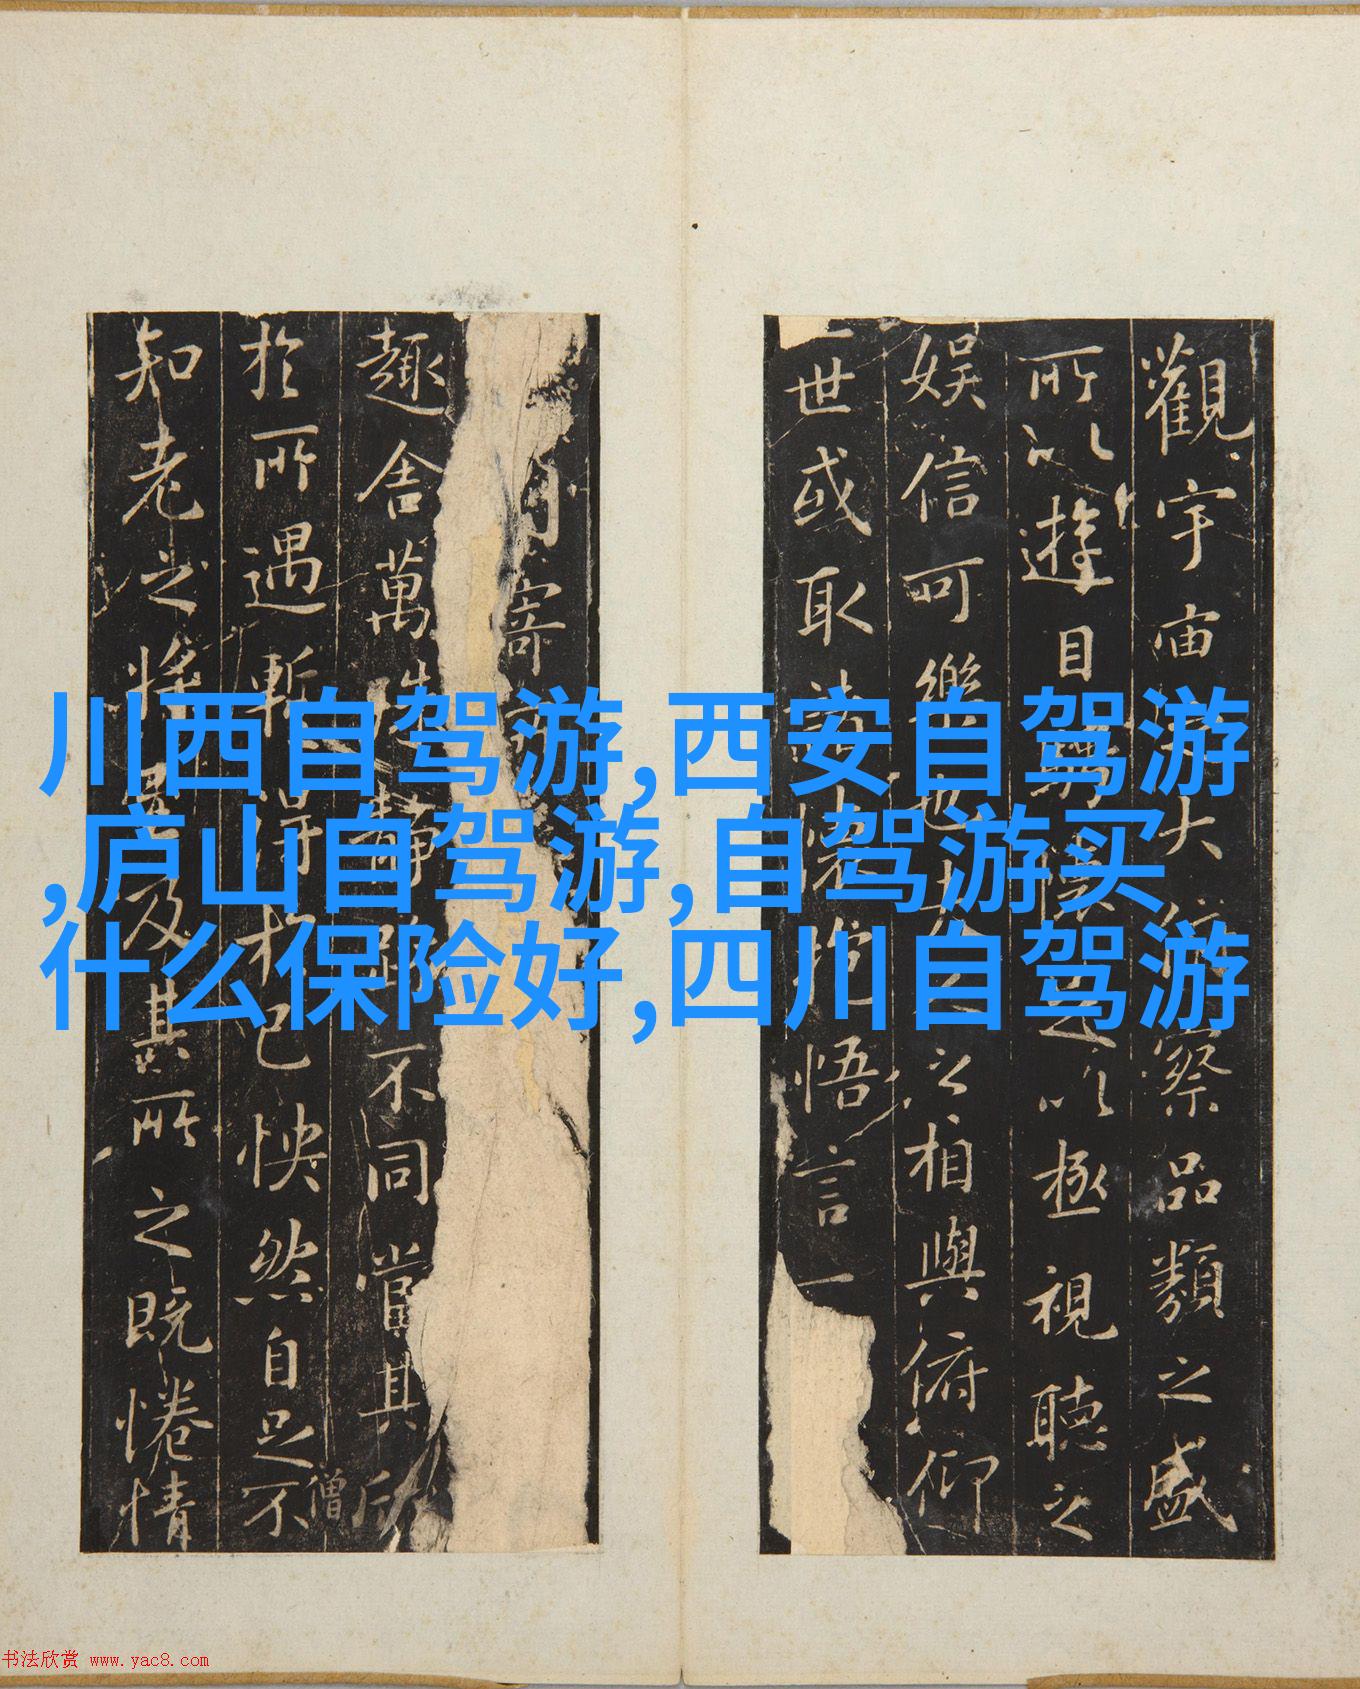 川西自驾游,西安自驾游
,庐山自驾游,自驾游买
什么保险好,四川自驾游
觀宇宙大俯察品類之盛
所以遊目騁懷足以極視聽之
娛信可樂也夫人之相與俯仰
世或取諸懷抱悟言一
寄
趣舍萬殊靜躁不同當其欣
僧
於所遇暫得於己怏然自足不
知老之將至及其所之既惓情
书法欣赏 www.yac8.com